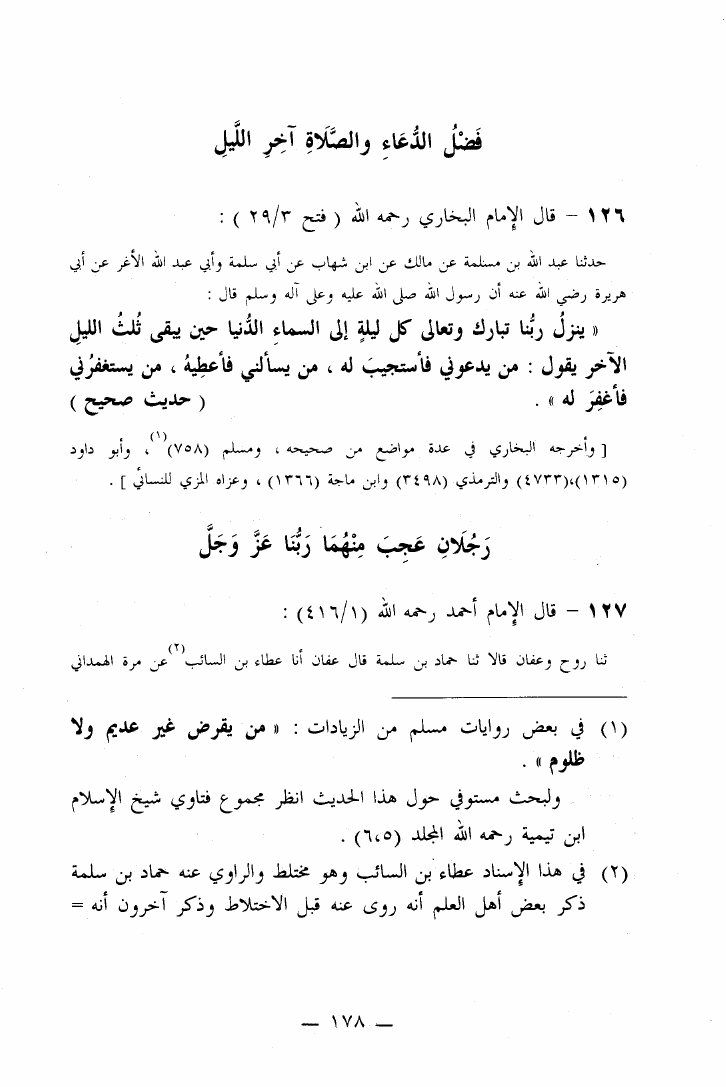 فَضْلُ الدُّعَاءِ والصَّلَاةِ آخِرِ اللَّيلِ
١٢٦ – قال الإمام البخاري رحمه الله ( فتح ٢٩/٣ ) :
حدثنا عبد الله بن مسلمة عن مالك عن ابن شهاب عن أبي سلمة وأبي عبد الله الأغر عن أبي
هريرة رضي الله عنه أن رسول الله صلى الله عليه وعلى آله وسلم قال :
« ينزلُ ربُّنا تبارك وتعالى كل ليلةٍ إلى السماء الدُّنيا حين يبقى ثُلثُ الليلِ
الآخر يقول : من يدعوني فأستجيبَ له ، من يسألني فأعطِيهُ ، من يستغفرُني
فأغفِرَ له » . ( حديث صحيح )
[ وأخرجه البخاري في عدة مواضع من صحيحه ، ومسلم (٧٥٨)(١)، وأبو داود
(١٣١٥)،(٤٧٣٣) والترمذي (٣٤٩٨) وابن ماجة (١٣٦٦) ، وعزاه المزي للنسائي ] .
رَجُلَانِ عَجِبَ مِنْهُمَا رَبُّنَا عَزَّ وَجَلَّ
١٢٧ – قال الإمام أحمد رحمه الله (٤١٦/١) :
ثنا روح وعفان قالا ثنا حماد بن سلمة قال عفان أنا عطاء بن السائب(٢)عن مرة الهمداني
(١) في بعض روايات مسلم من الزيادات : « من يقرض غير عديم ولا
ظلوم » .
ولبحث مستوفي حول هذا الحديث انظر مجموع فتاوي شيخ الإسلام
ابن تيمية رحمه الله المجلد (٦،٥) .
(٢) في هذا الإسناد عطاء بن السائب وهو مختلط والراوي عنه حماد بن سلمة
ذكر بعض أهل العلم أنه روى عنه قبل الاختلاط وذكر آخرون أنه =
— ١٧٨ —